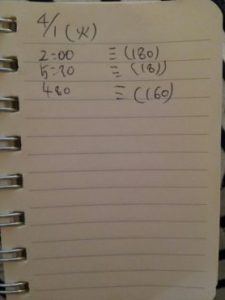 4/1 (火)
2:00 ミ (180)
5:20 ミ (181)
480 ミ (160)